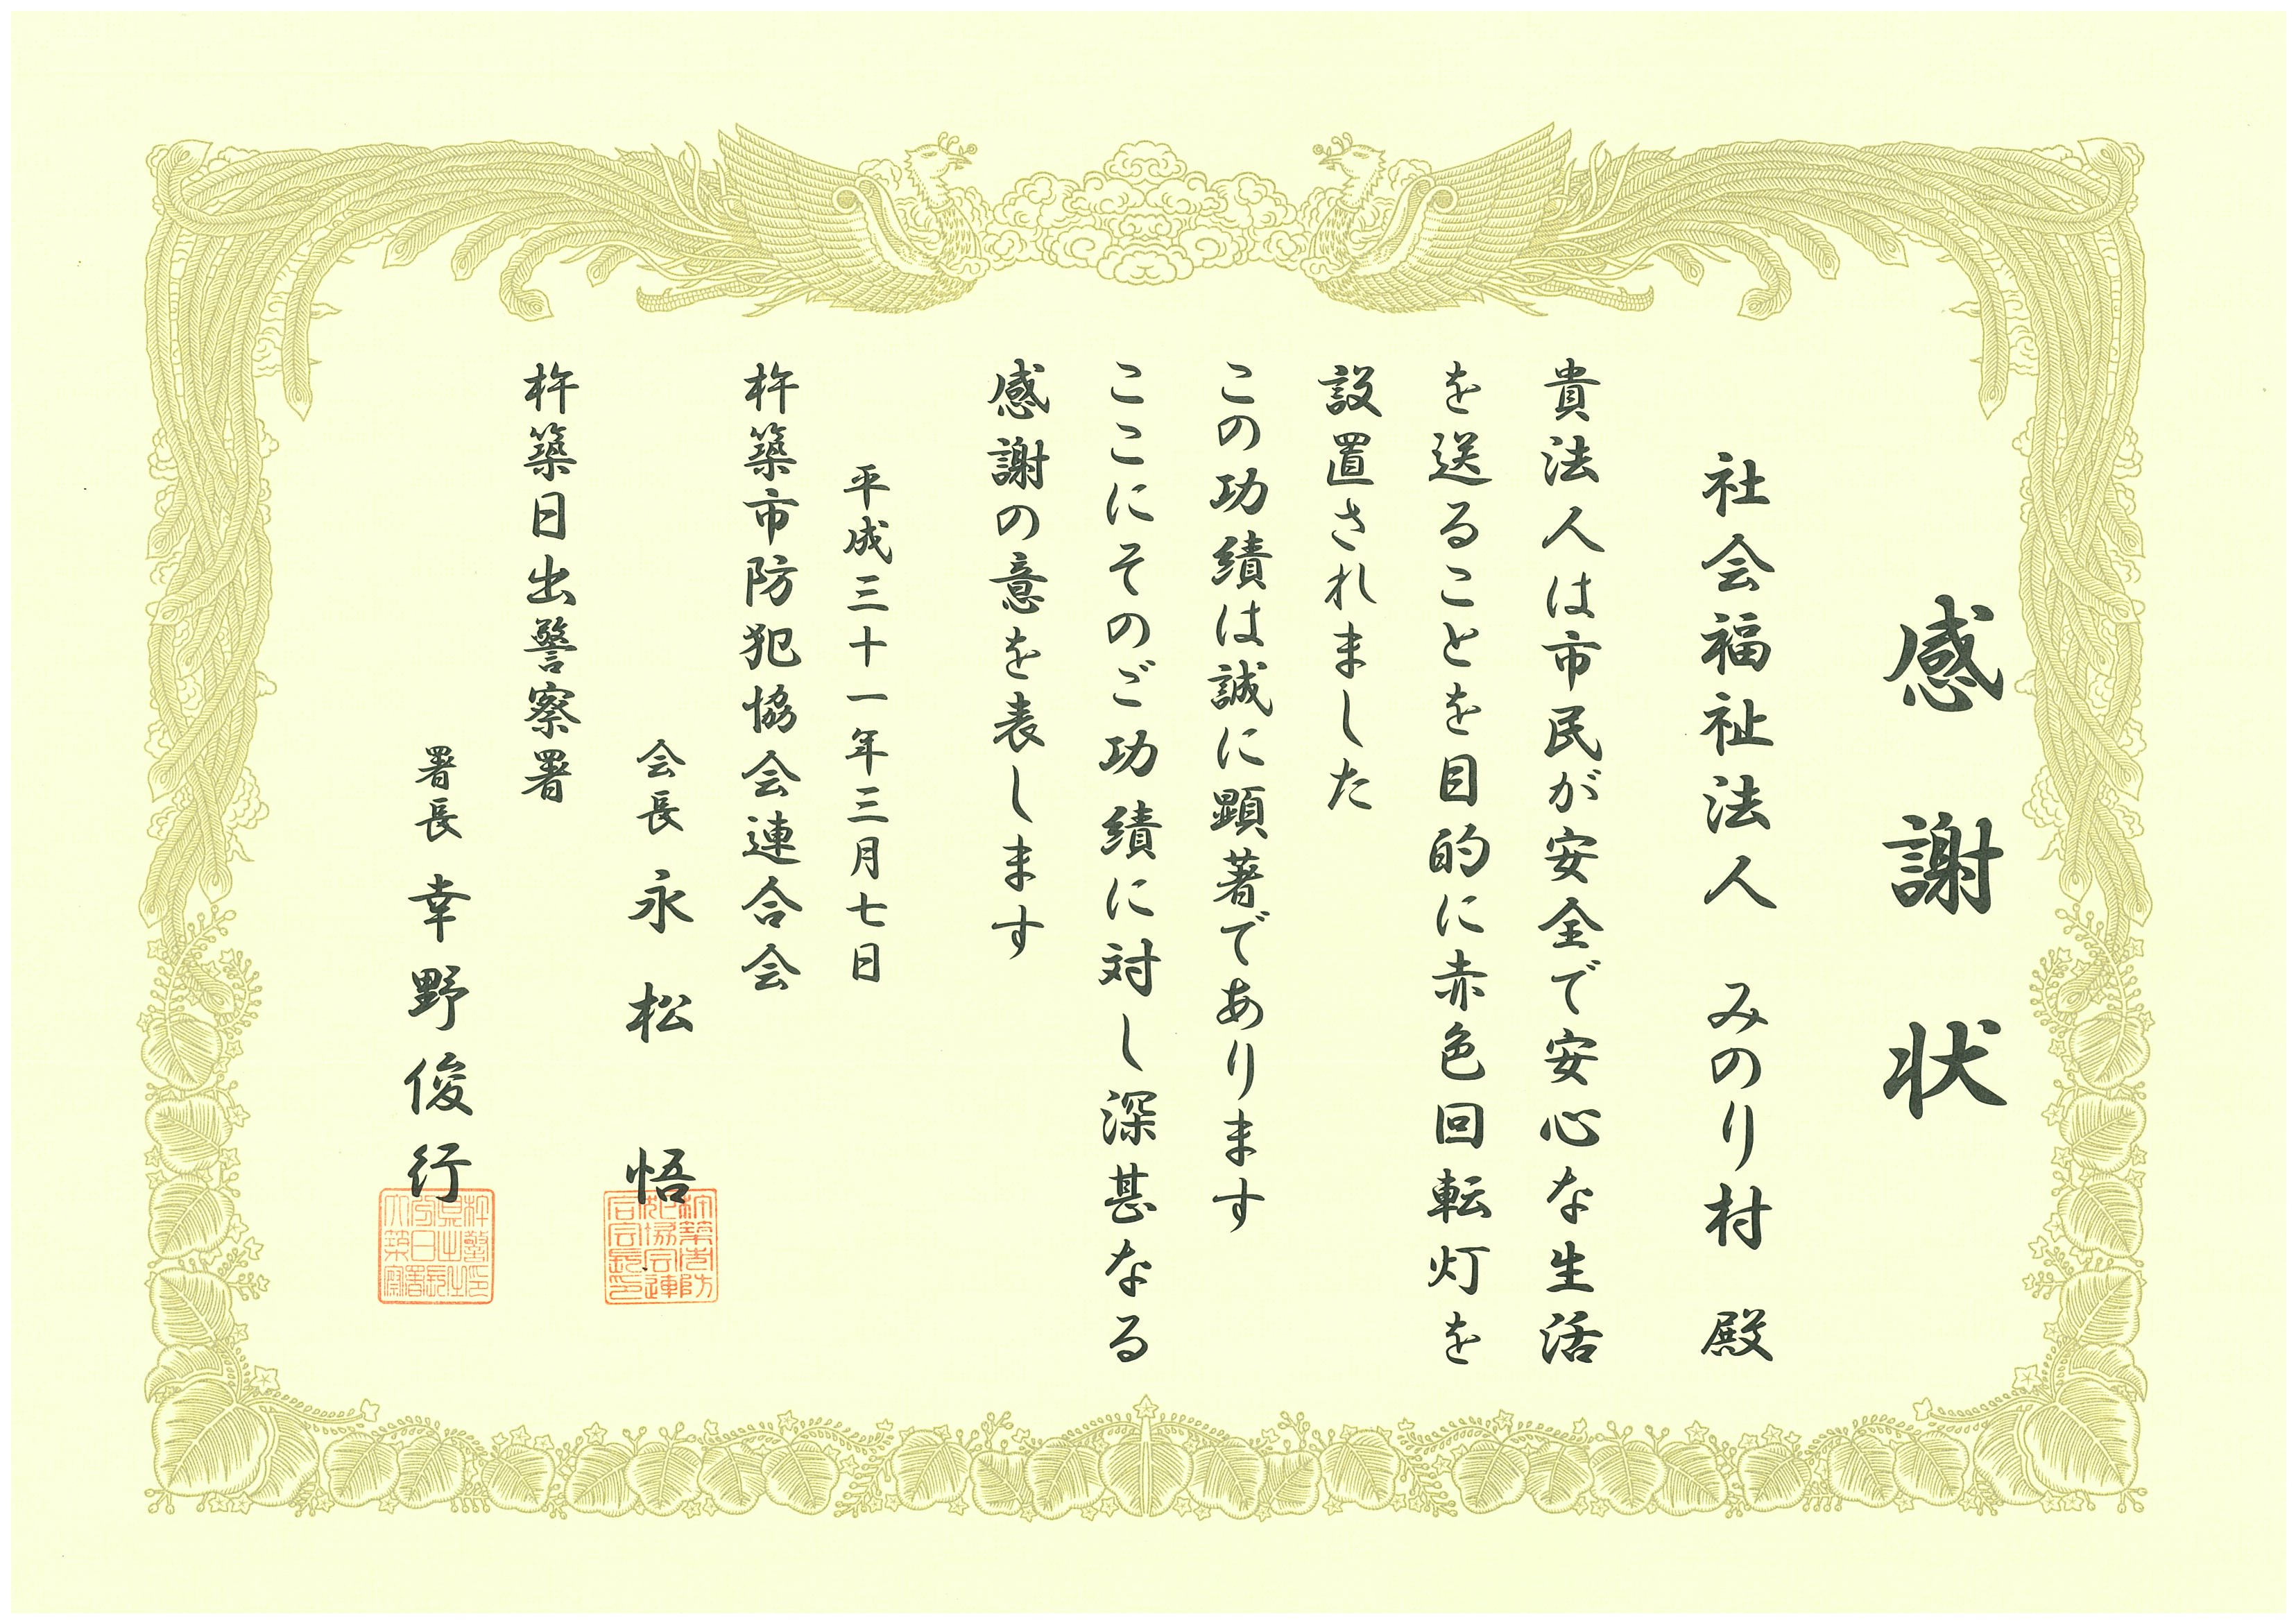 感謝状
社会福祉法人　みのり村　殿
貴法人は市民が安全で安心な生活
を送ることを目的に赤色回転灯を
設置されました
この功績は誠に顕著であります
ここにそのご功績に対し深甚なる
感謝の意を表します
平成三十一年三月七日
杵築市防犯協会連合会
会長　永松　悟
杵築日出警察署
署長　幸野俊行